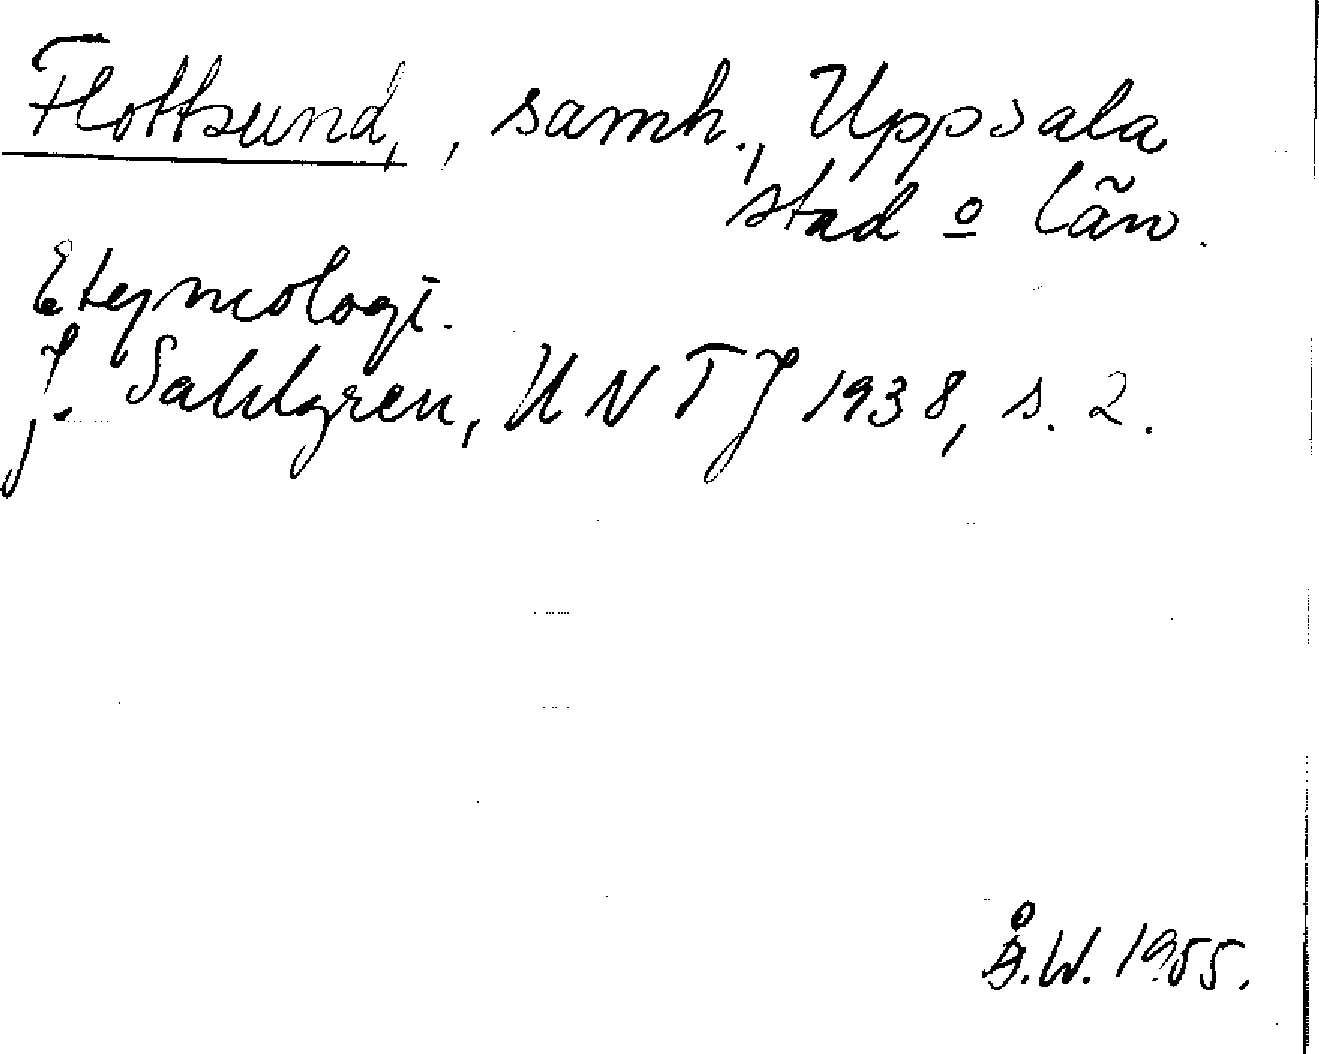 Flottsund, , samh., Uppsala
stad o län.
Etymologi.
J. Sahlgren, UNTJ 1938, s. 2.
Å.W. 1955.